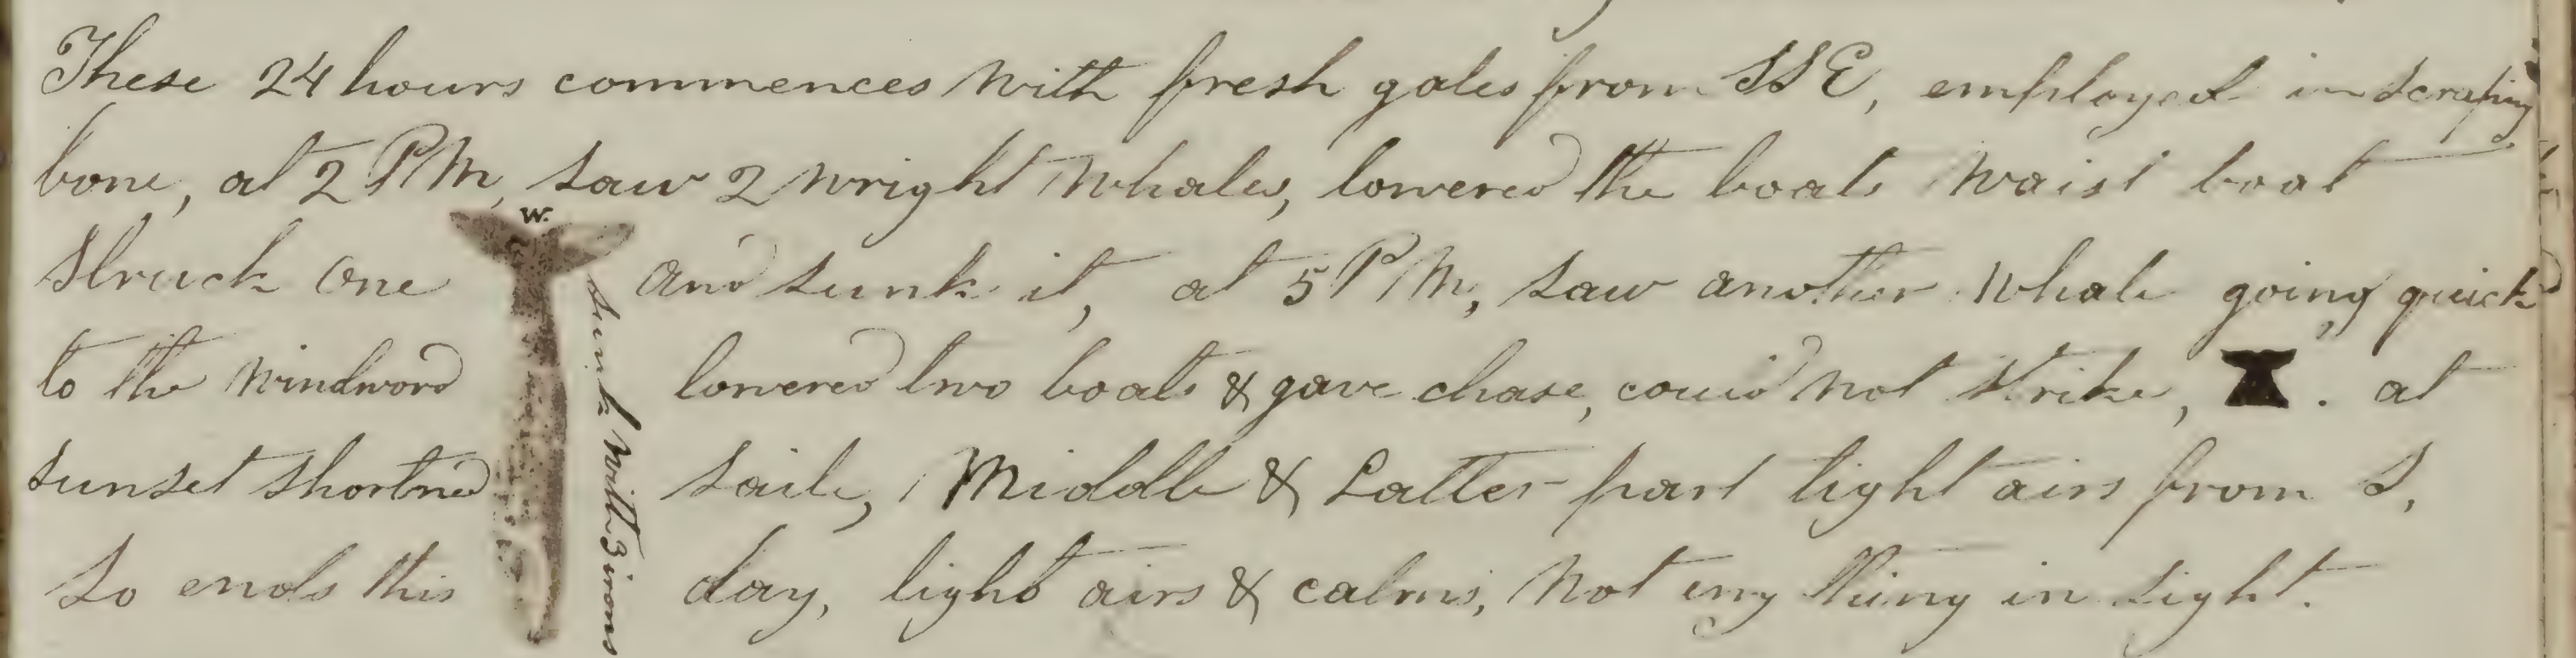 These 24 hours commences with fresh gales from SSE, employed in scraping
bone, at 2 PM, saw 2 wright whales, lowered the boats waist boat
W.
struck one and sunk it, at 5 PM, saw another whale going quick
to the windword lowered two boats & gave chase, could not strike, . at
sunset shortned sails, Middle & Latter part light airs from S,
So ends this day, light airs & calms, not eny thing in sight.
sunk with 3 irons